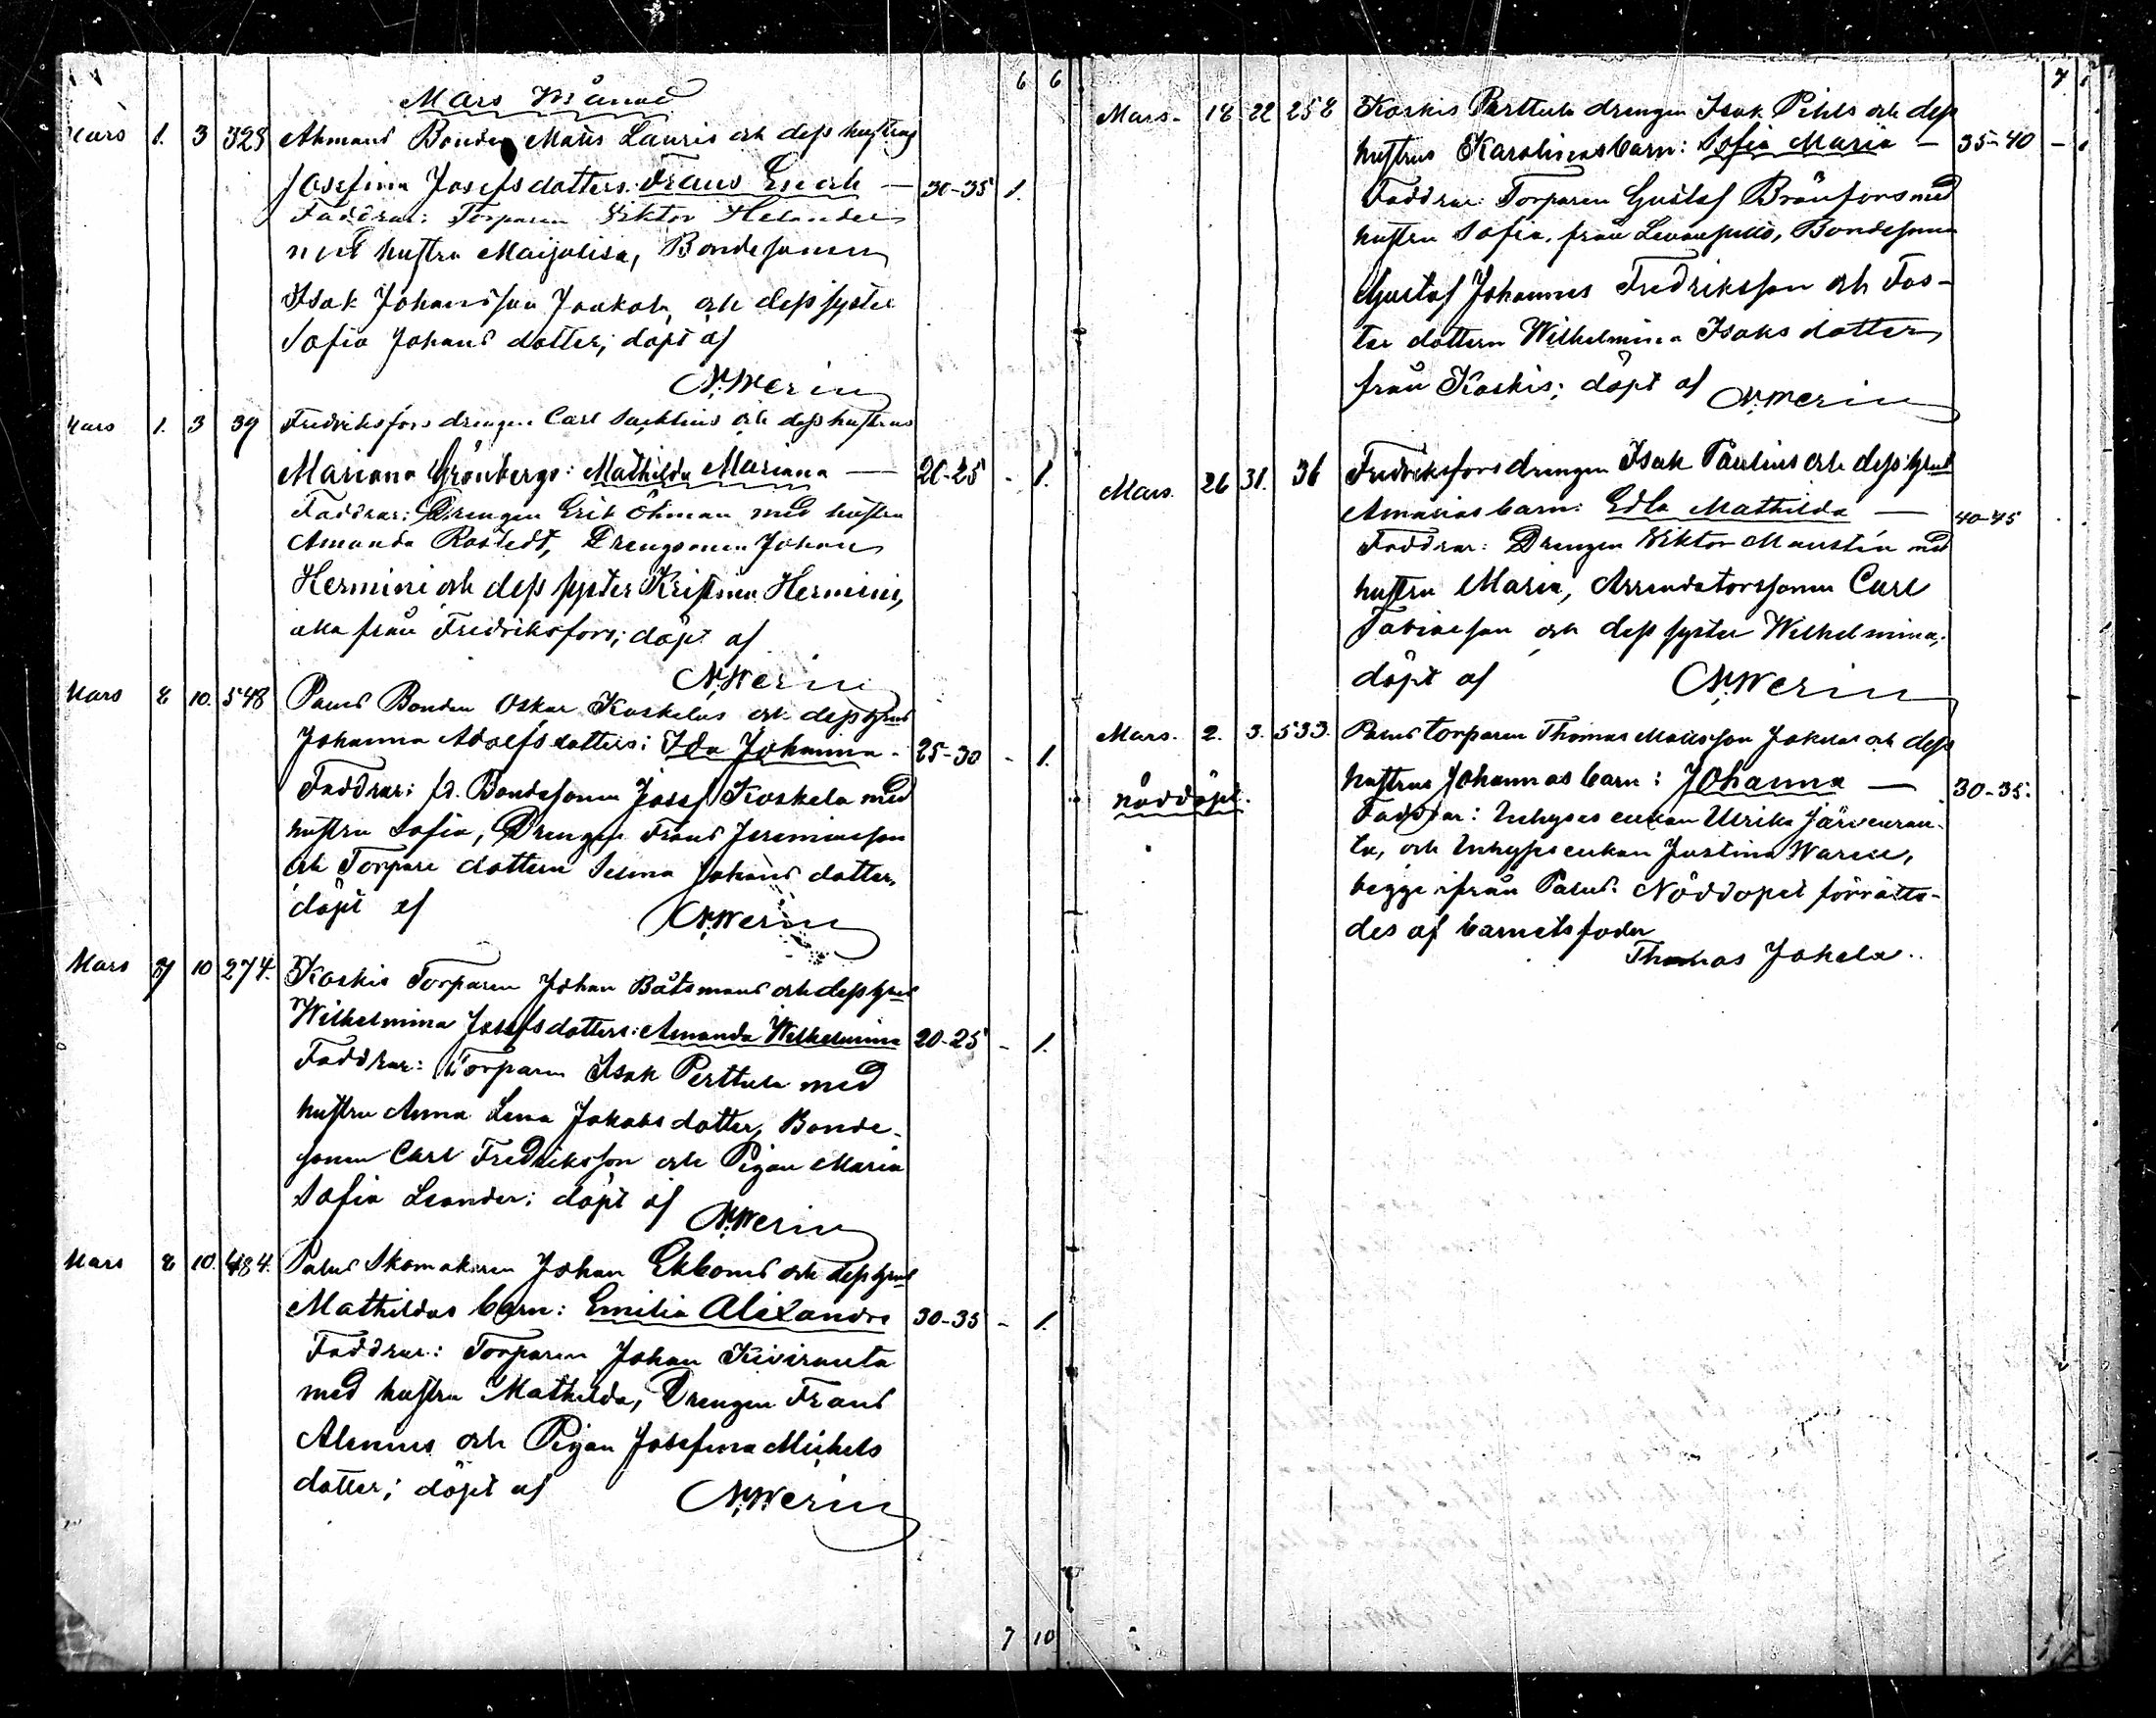 6 6
Mars Månad
Mars 1. 3 328 Ahmaus Bonden Matts Lauris och dess hustrus
Josefina Josefsdotters: Frans Enok — 30-35 1.
Faddrar: Torparen Viktor Helander
med hustru Maijalisa, Bondesonen
Isak Johansson Jaakola och dess syster
Sofia Johans dotter; döpt af
N. Werin
Mars 1. 3 39 Fredriksfors drengen Carl Sacklins och dess hustrus
Mariana Grönbergs: Mathilda Mariana — 20-25 - 1.
Faddrar: Drengen Erik Öhman med hustru
Amanda Rostedt, Drengsonen Johan
Hermini och dess syster Kristina Hermini,
alla från Fredriksfors; döpt af
N. Werin
Mars 8 10. 548 Palus Bonden Oskar Koskelas och dess hrus
Johanna Adolfsdotters: Ida Johanna - 25-30 - 1.
Faddrar: fd. Bondesonen Josef Koskela med
hustru Sofia, Drengen Frans Jeremiasson
och Torpare dottern Selma Johans dotter,
döpt af N. Werin
Mars 7 10 274. Koskis Torparen Johan Båtsmans och dess hrus
Wilhelmina Josefsdotters: Amanda Wilhelmina 20-25 - 1.
Faddrar: Torparen Isak Perttula med
hustru Anna Lena Jakobs dotter, Bonde-
sonen Carl Fredriksson och Pigan Maria
Sofia Leander; döpt af N. Werin
Mars 8 10. 484. Palus Skomakaren Johan Ekboms och dess hrus
Mathildas barn: Emilia Alexandra 30-35 - 1.
Faddrar: Torparen Johan Kiviranta
med hustru Mathilda, Drengen Frans
Alenius och Pigan Josefina Michels
dotter; döpt af N. Werin
7 10
7
Mars. 18 22 258 Koskis Perttula drengen Isak Pihls och dess
hustrus Karolinas barn: Sofia Maria — 35-40 -
Faddrar: Torparen Gustaf Brönfors med
hustru Sofia, från Levanpää, Bondesonen
Gustaf Johannes Fredriksson och Fos-
ter dottern Wilhelmina Isaks dotter
från Koskis; döpt af N. Werin
Mars. 26 31. 36 Fredriksfors drengen Isak Paulins och dess hrus
Amandas barn: Edla Mathilda — 40-45
Faddrar: Drengen Viktor Maustin med
hustru Maria, Arrendatorssonen Carl
Tobiasson och dess syster Wilhelmina;
döpt af N. Werin
Mars. 2. 3. 533. Palus torparen Thomas Mattsson Jokelas och dess
nöddöpt. hustrus Johannas barn: Johanna — 30-35.
Faddrar: Inhyses enkan Ulrika Järvenran-
ta, och Inhyses enkan Justina Waren,
begge ifrån Palus. Nöddopet förrätta-
des af barnets fader
Thomas Jokela.